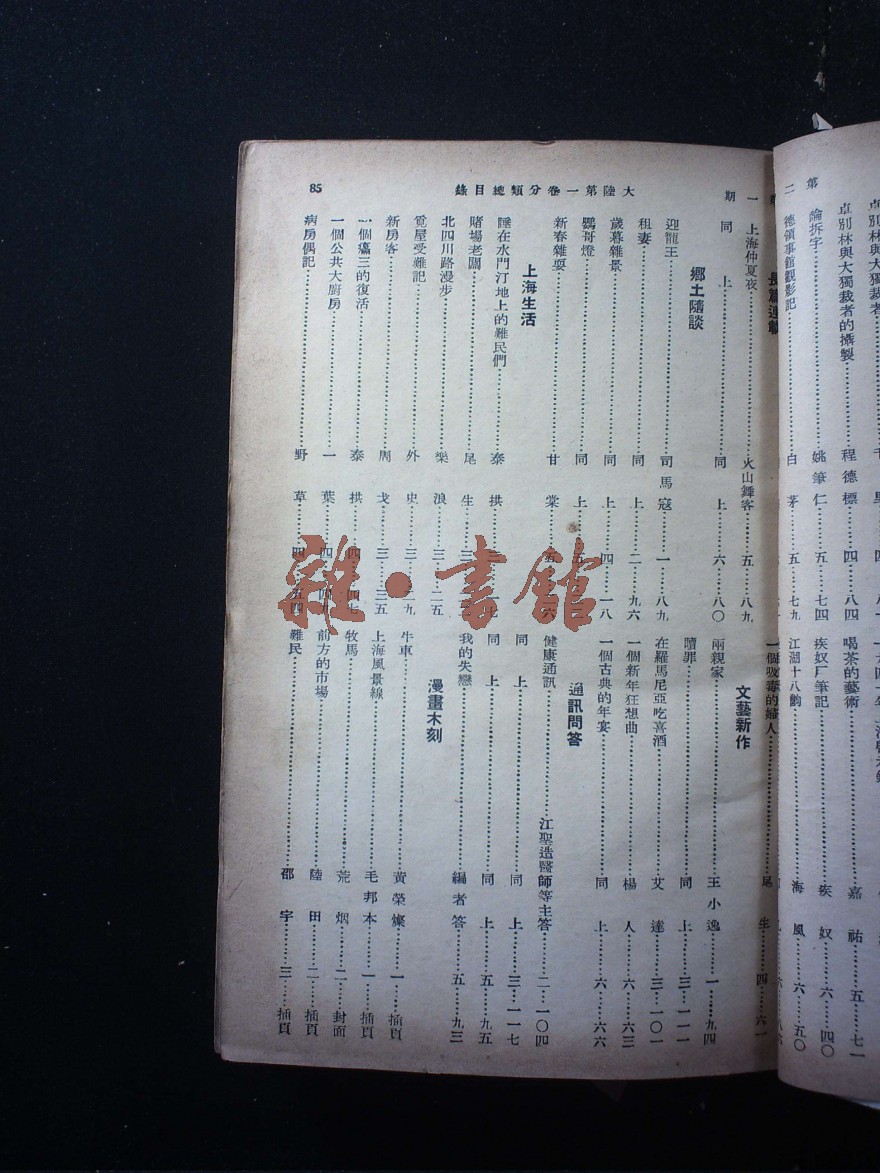 大陸第一卷分類總目錄
85
第二
一期
卓別林與大獨裁者的攝製……程德標……四……八四
論拆字……姚筆仁……五……七四
德領事館觀影記……白茅……五……七九
長篇連載
一 上海仲夏夜……火山鍾客……五……八九
同上……同上……六……八〇
鄉土隨談
迎龍王……司馬寇……一……八九
租妻……同上……二……九六
歲暮雜景……同上……四……一八
鸚哥燈……同上……五
新春雜耍……甘棠……五
上海生活
睡在水門汀地上的難民們……泰拱
賭場老闆……尾生……三
北四川路漫步……樂浪……三……二五
覓屋受難記……外史……三……二九
新房客……周戈……三……三五
一個癟三的復活……泰拱……四……四七
一個公共大廚房……一葉……四……四九
病房偶記……野草……四……五四
喝茶的藝術……嘉祐……五……七一
疾奴厂筆記……疾奴……六……四〇
江湖十八齣……海風……六……五〇
一個吸毒的婦人……尾生……四……六一
文藝新作
兩親家……王小逸……一……九四
贖罪……同上……三……一一一
在羅馬尼亞吃喜酒……艾達……三……一〇一
一個新年狂想曲……楊人……六……六三
一個古典的年宴……同上……六……六六
通訊問答
健康通訊……江聖造醫師等主答……二……一〇四
同上……同上……三……一一七
同上……同上……五……九五
我的失戀……編者答……五……九三
漫畫木刻
牛車……黃榮燦……一……插頁
上海風景線……毛邦本……一……插頁
牧馬……荒烟……二……封面
前方的市場……陸田……二……插頁
難民……邵宇……三……插頁
雜·書館